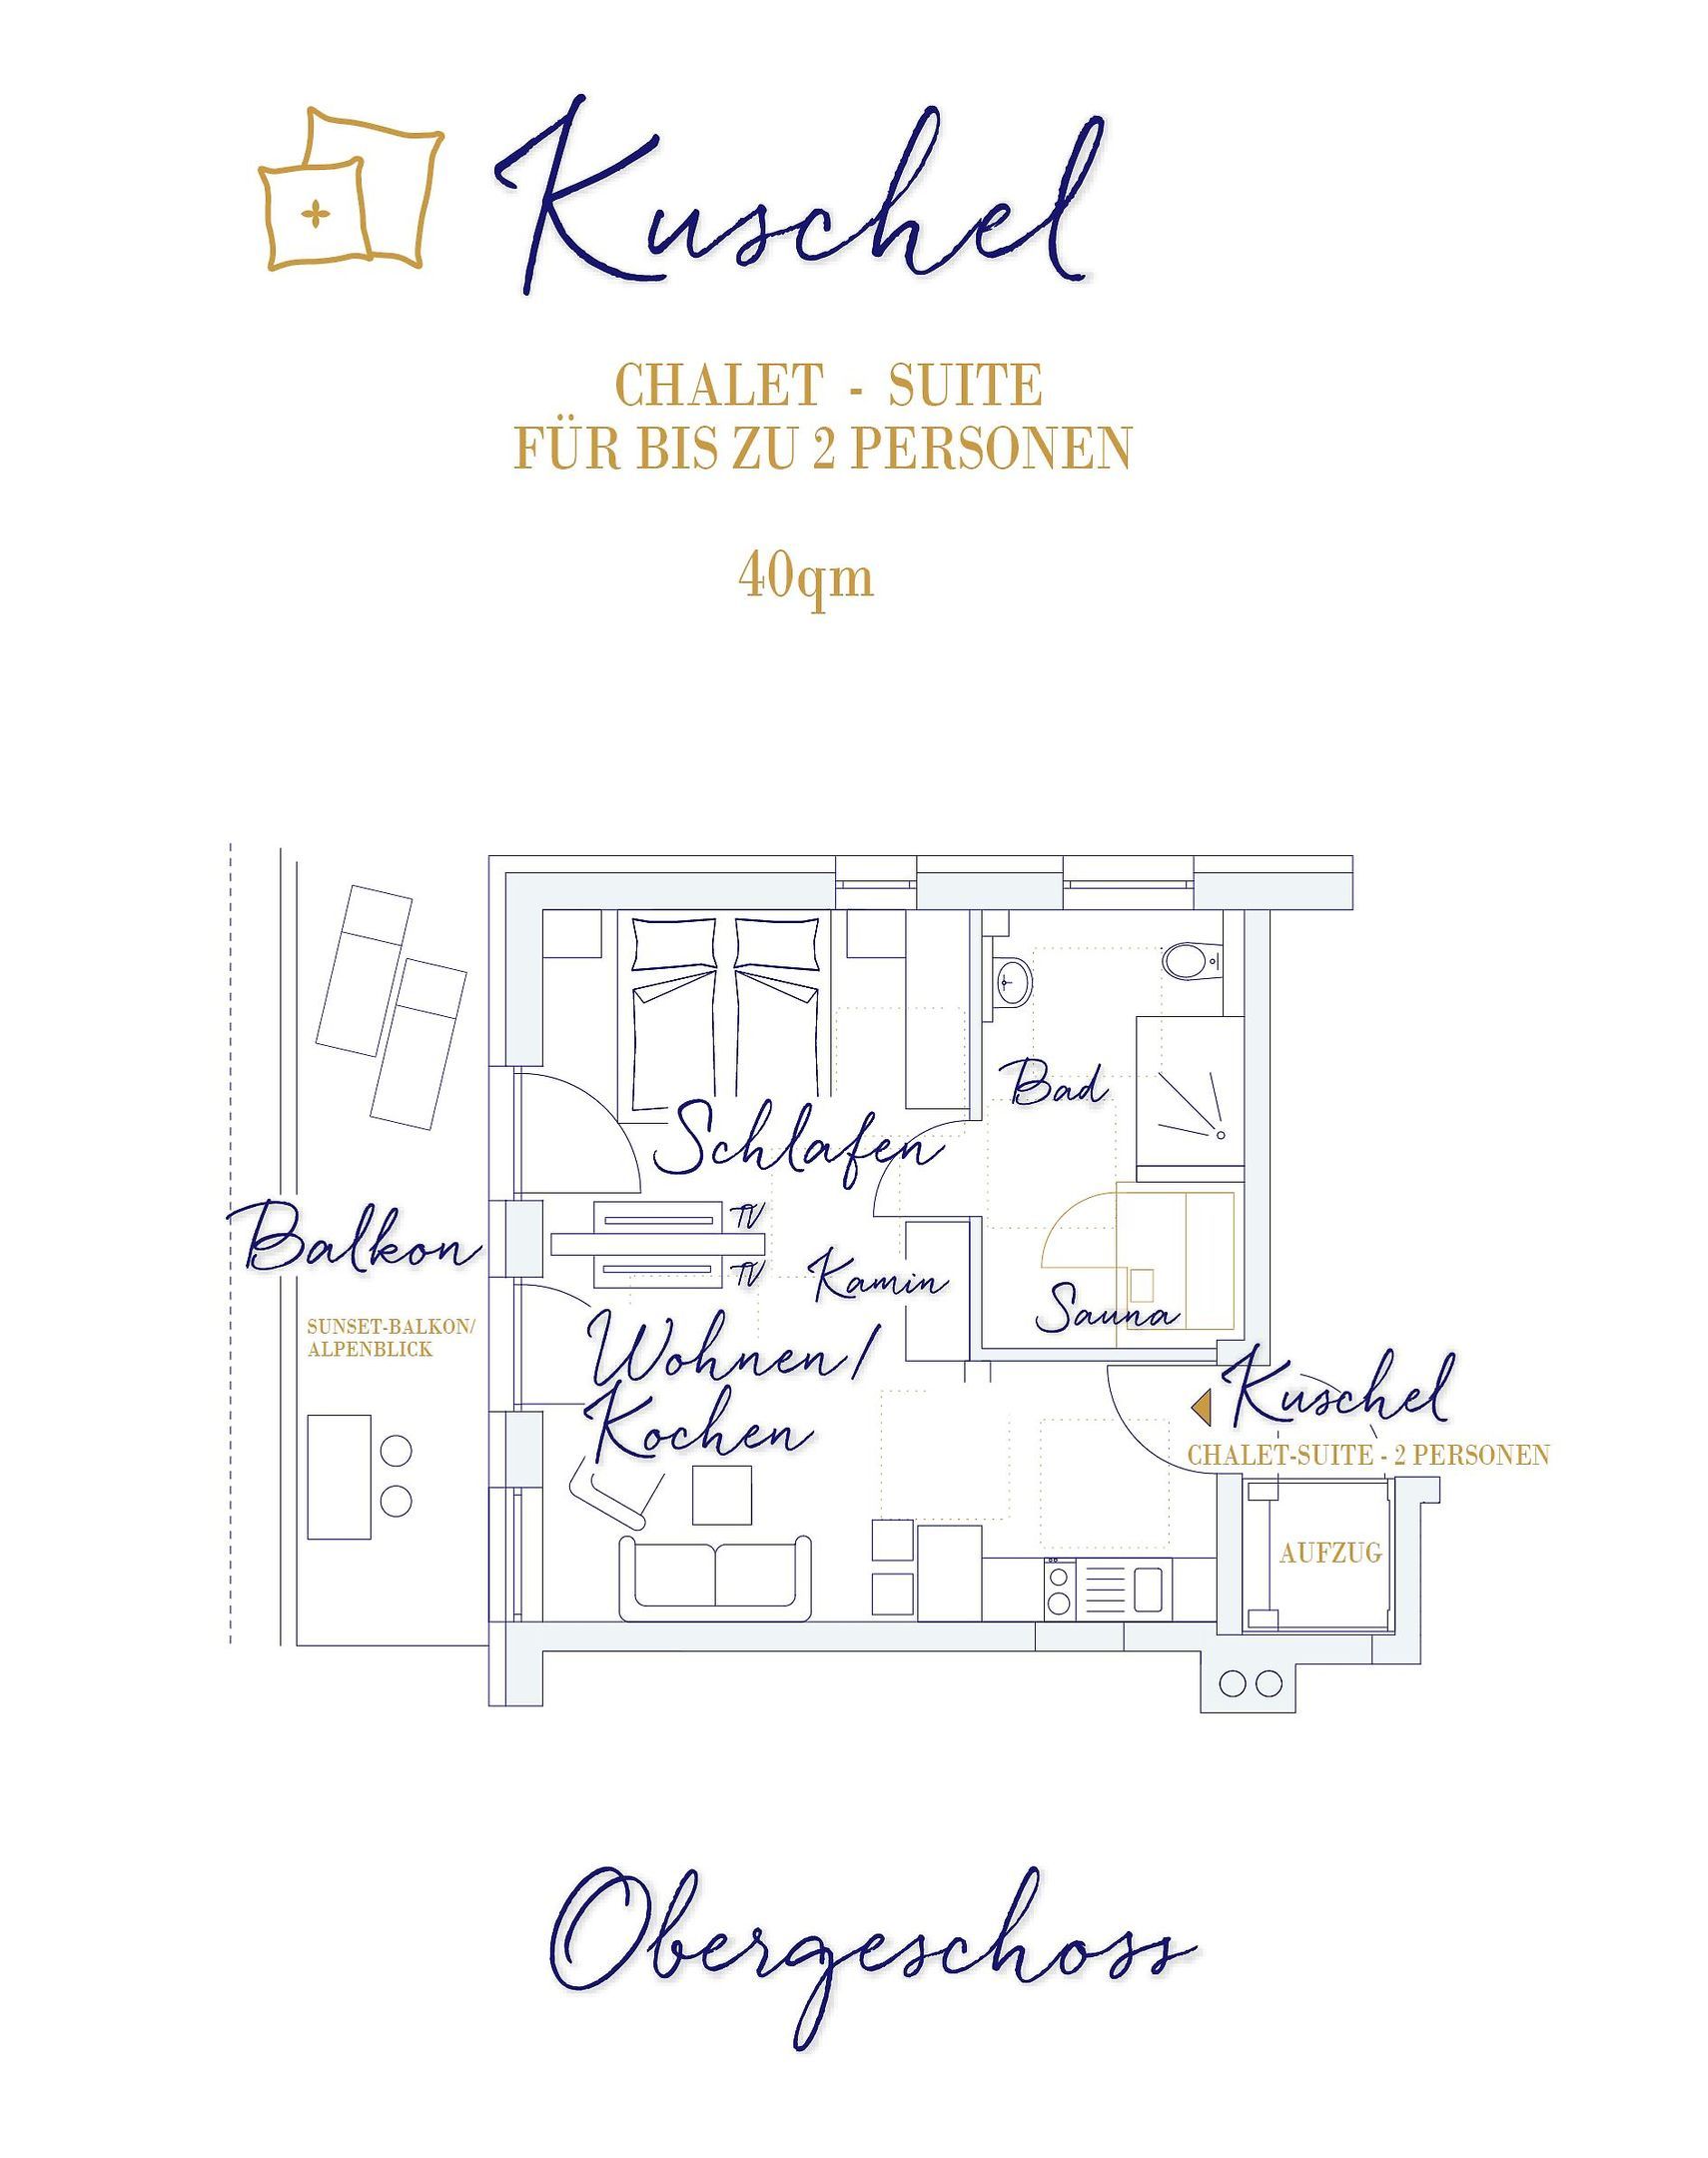 Kuschel
CHALET - SUITE
FÜR BIS ZU 2 PERSONEN
40qm
Bad
Schlafen
TV
Balkon
TV
Kamin
Sauna
SUNSET-BALKON/
ALPENBLICK
Wohnen/
Kochen
Kuschel
CHALET-SUITE - 2 PERSONEN
AUFZUG
Obergeschoss